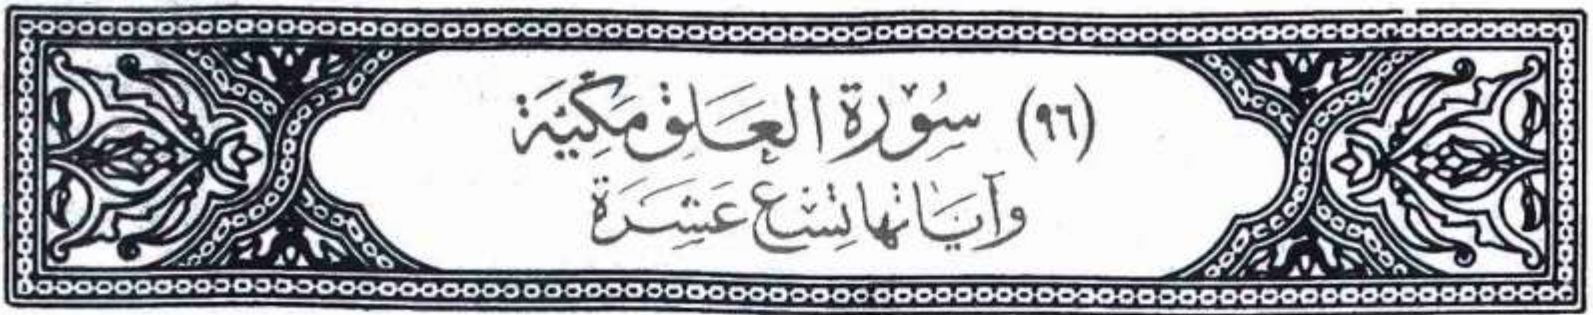 (٩٦) سُورَة العَلق مَكِيَّة
وَآيَاتها تِسْع عَشَرَة